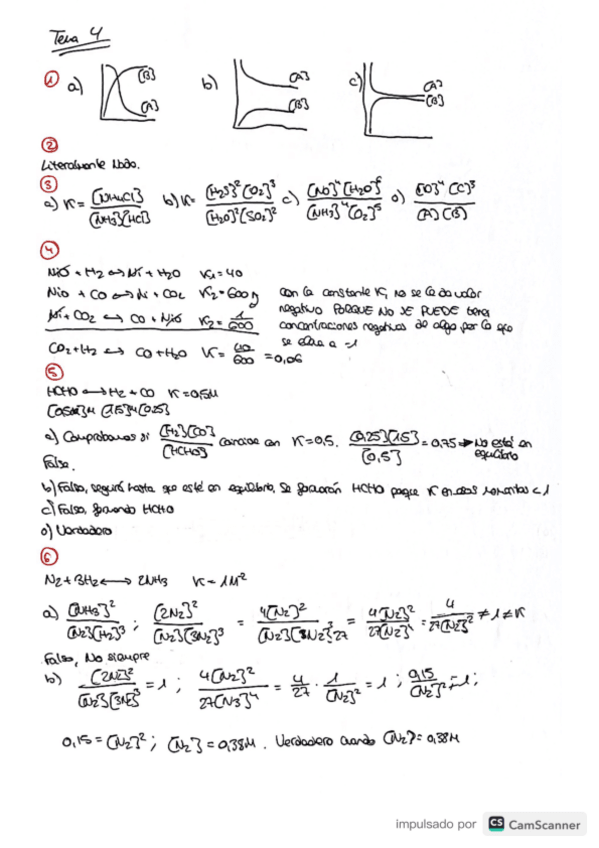 Tema 4
① a) [B] [A] b) [A] [B] c) [A] [B]
②
Literalmente
③
a) K = [NH4Cl] / [NH3][HCl] b) K = [H2S]²[O2]³ / [H2O]²[SO2]² c) [NO]⁴[H2O]⁶ / [NH3]⁴[O2]⁵ d) [D]⁴[C]³ / [A][B]
④
NiO + H2 ↔ Ni + H2O K1 = 40
NiO + CO ↔ Ni + CO2 K2 = 600 con la constante K, no se le da valor
Ni + CO2 ↔ CO + NiO K2 = 1/600 negativo PORQUE NO SE PUEDE tener
concentraciones negativas de algo, por lo que
se eleva a -1
CO2 + H2 ↔ CO + H2O K = 40/600 = 0,06
⑤
HCHO ↔ H2 + CO K = 0,5M
[0,5]M [1,5]M [0,25]
a) Comprobamos si [H2][CO] / [HCHO] coincide con K = 0,5. [0,25][1,5] / [0,5] = 0,75 → No está en equilibrio
Falso.
b) Falso, seguirá hasta que esté en equilibrio, se formarán HCHO porque K
c) Falso, formando HCHO
d) Verdadero
⑥
N2 + 3H2 ↔ 2NH3 K = 1M²
a) [NH3]² / [N2][H2]³ ; [2N2]² / [N2][3N2]³ = 4[N2]² / [N2][3N2]³ 27 = 4[N2]² / 27[N2]⁴ = 4 / 27[N2]² ≠ 1 ≠ K
Falso, No siempre
b) [2N2]² / [N2][3N2]³ = 1 ; 4[N2]² / 27[N3]⁴ = 4/27 · 1/[N2]² = 1 ; 0,15 / [N2]² = 1 ;
0,15 = [N2]² ; [N2] = 0,38M . Verdadero cuando [N2] = 0,38M
impulsado por CS CamScanner